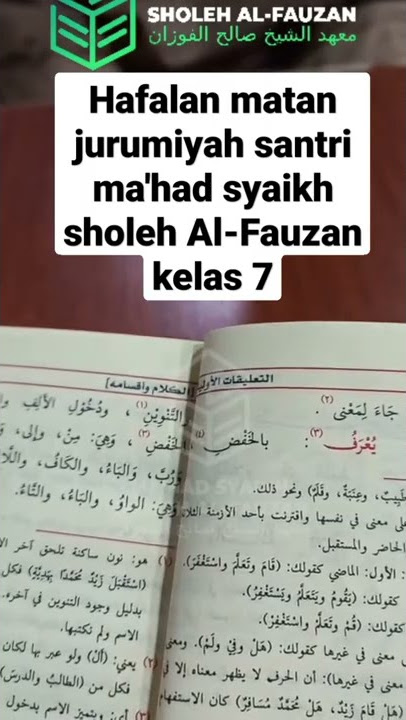 SHOLEH AL-FAUZAN
معهد الشيخ صالح الفوزان
Hafalan matan
jurumiyah santri
ma'had syaikh
sholeh Al-Fauzan
kelas 7
التعليقات الأولى
[الكلام وأقسامه]
جَاءَ لِمَعْنًى (٢).
يُعْرَفُ (٣) : بِالخَفْضِ (٤)
وَالتَّنْوِينِ (١)، وَدُخُوْلِ الأَلِفِ
الخَفْضِ (٣)، وَهِيَ: مِنْ، وَإِلَى،
وَرُبَّ، وَالبَاءُ، وَالكَافُ، وَاللَّامُ
وَهِيَ: الوَاوُ، وَالبَاءُ، وَالتَّاءُ.
وَعِنَبَةٌ، وَقَلَمٌ) ونحو ذلك.
على معنى في نفسها واقترنت بأحد الأزمنة الثلاثة
الحاضر والمستقبل.
الأول: الماضي كقولك: (قَامَ وَتَعَلَّمَ وَاسْتَغْفَرَ).
كقولك: (يَقُومُ وَيَتَعَلَّمُ وَيَسْتَغْفِرُ).
كقولك: (قُمْ وَتَعَلَّمْ وَاسْتَغْفِرْ).
معنى في غيرها كقولك: (هَلْ وَفِي وَلَمْ). ومعنى
معنى في غيرها): أن الحرف لا يظهر معناه إلا في
(هَلْ قَامَ زَيْدٌ، هَلْ مُحَمَّدٌ مُسَافِرٌ) كان الاستفهام
(١) هو: نون ساكنة تلحق آخر
(اسْتَقْبَلَ زَيْدٌ مُحَمَّدًا بِهَدِيَّةٍ) فكل
بدليل وجود التنوين في آخره.
الاسم ولم نكتبها.
(٢) يعني: (أَلْ) ولو عبر بها لكان
فكل من (الطالبُ والدرسَ)
ويتميز الاسم بدخول